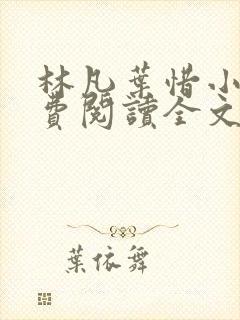 林凡葉惜小
費閱讀全文
葉依舞